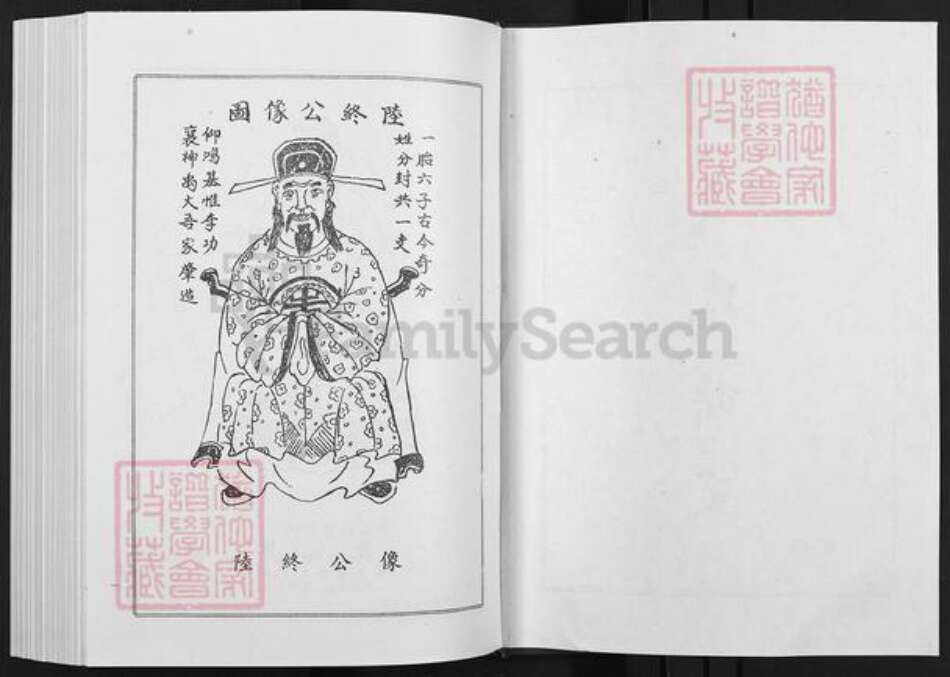 陸終公像圖
一胎六子古今奇分
姓分封共一支
仰鴻基惟季功
襄神禹大吾家肇造
陸終公像
猶他家
譜學會
收藏
猶他家
譜學會
收藏
FamilySearch